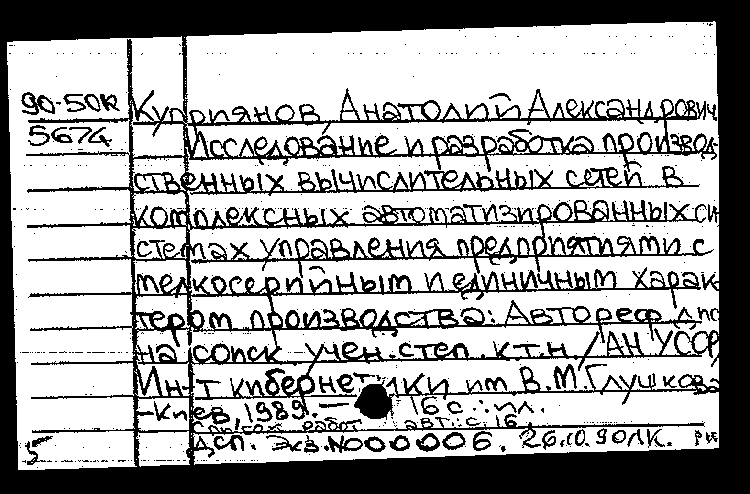 90-50К
5674
Куприянов Анатолий Александрович
Исследование и разработка производ-
ственных вычислительных сетей в
комплексных автоматизированных си
стемах управления предприятиями с
мелкосерийным и единичным харак
тером производства: Автореф дис
на соиск учен.степ. к.т.н. /АН УССР,
Ин-т кибернетики им. В.М.Глушкова
-Киев, 1989. — 16 с.: ил.
Список работ авт.: с.16.
ДСП. Экз.№000006. 26.10.90
5